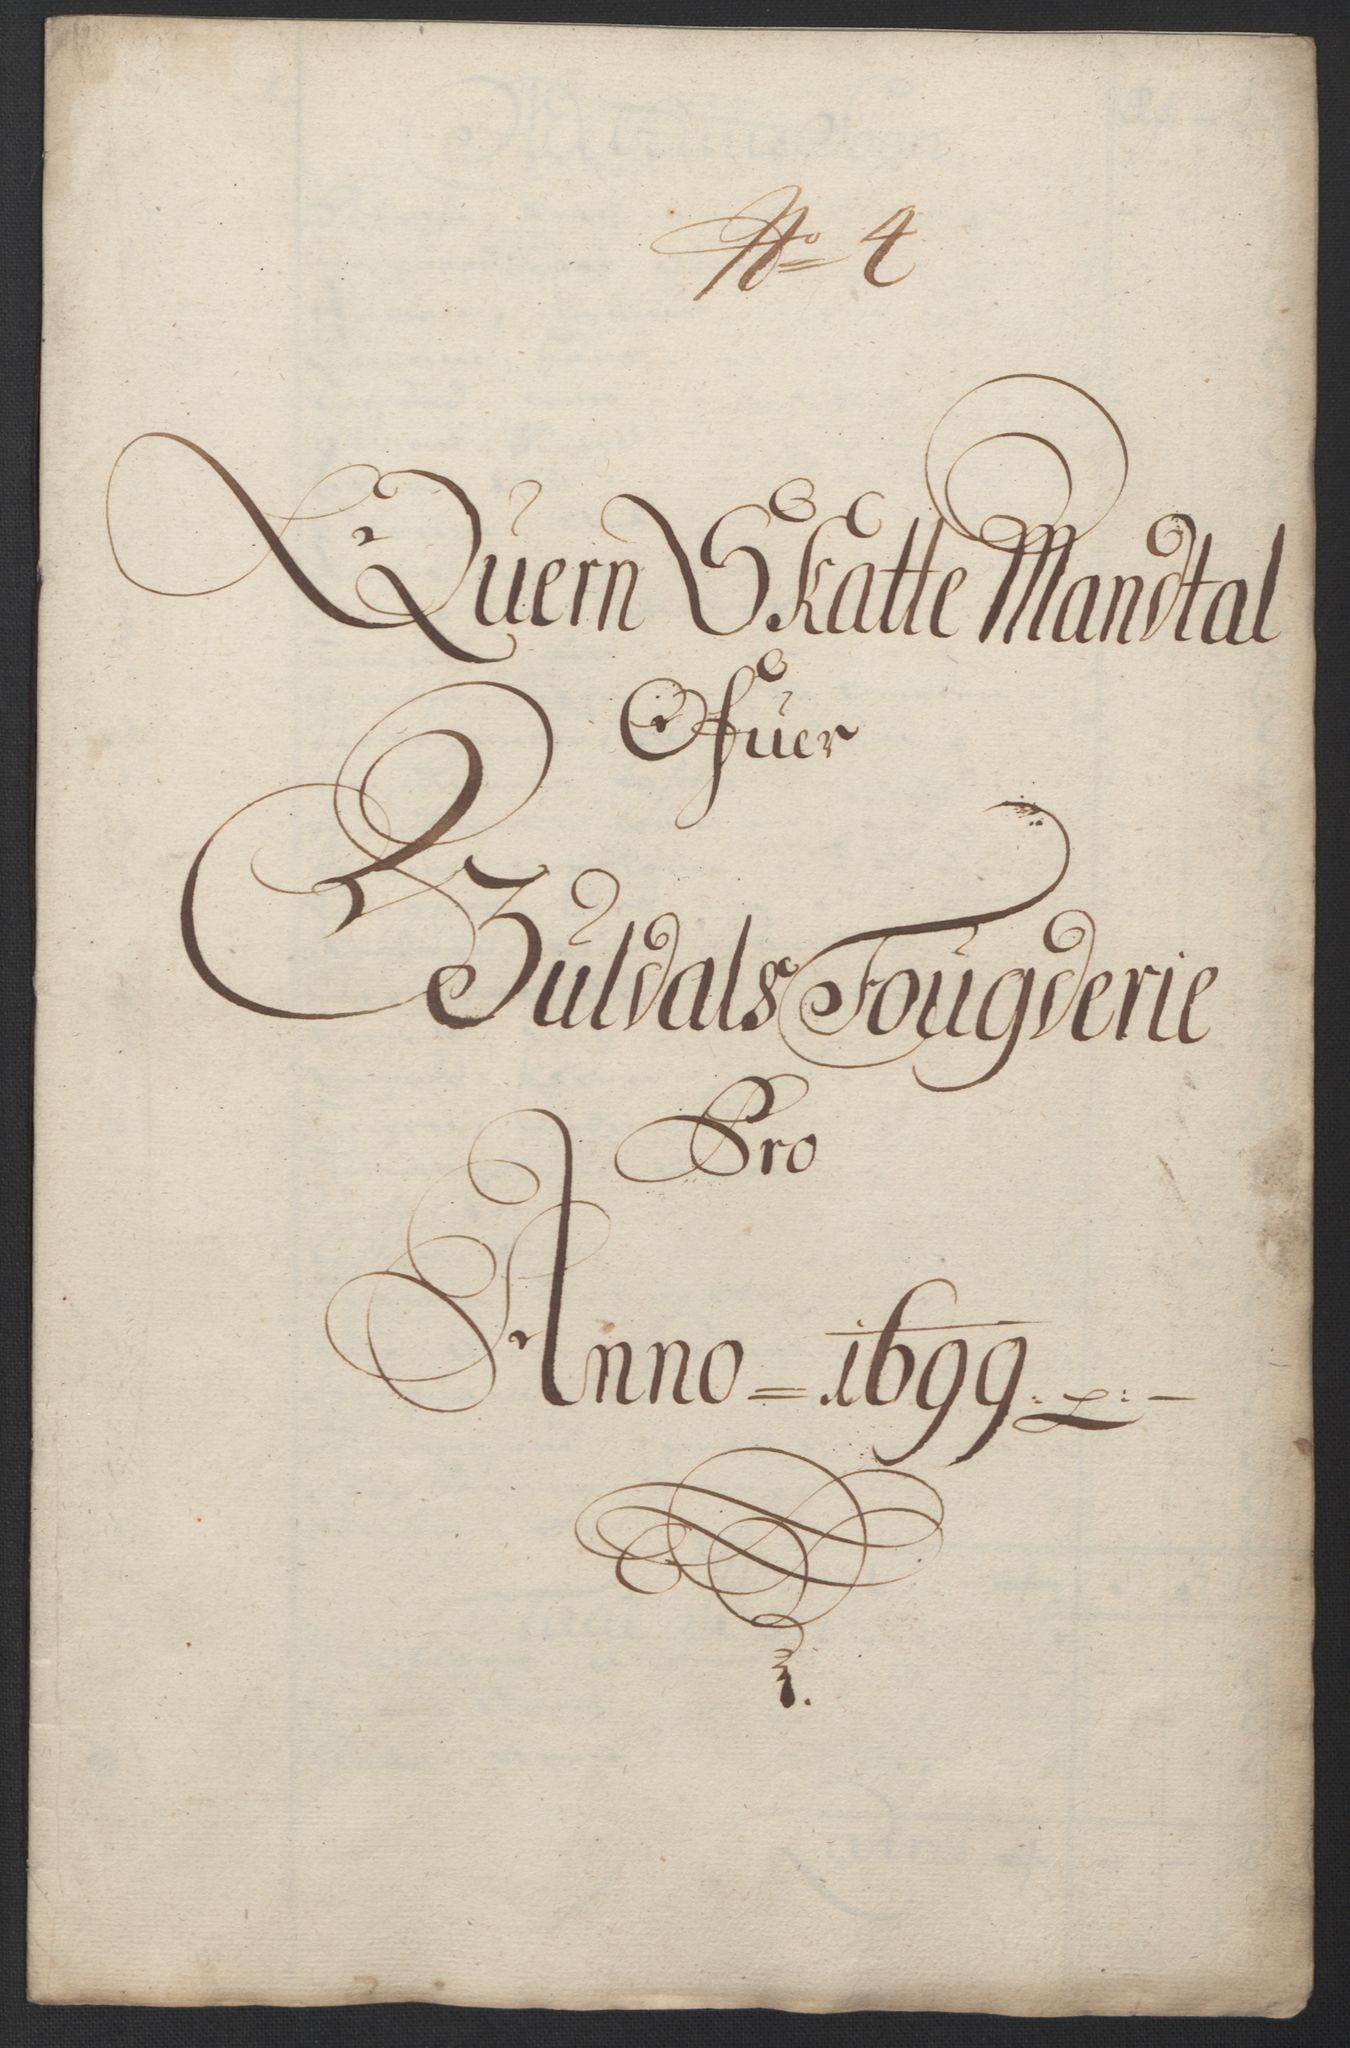 No 4
Quern Skatte Mandtal
Ofuer
Guldals Fougderie
Pro
Anno = 1699.